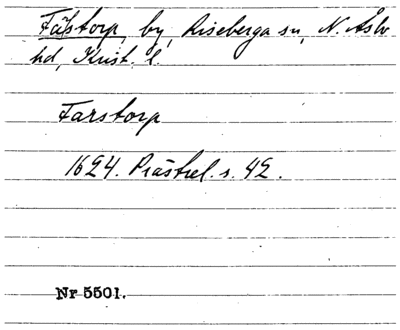 Fästorp, by, Riseberga sn, N. Åsbo
hd, Krist. l.
Farstorp
1624. Prästrel. s. 42.
Nr 5501.